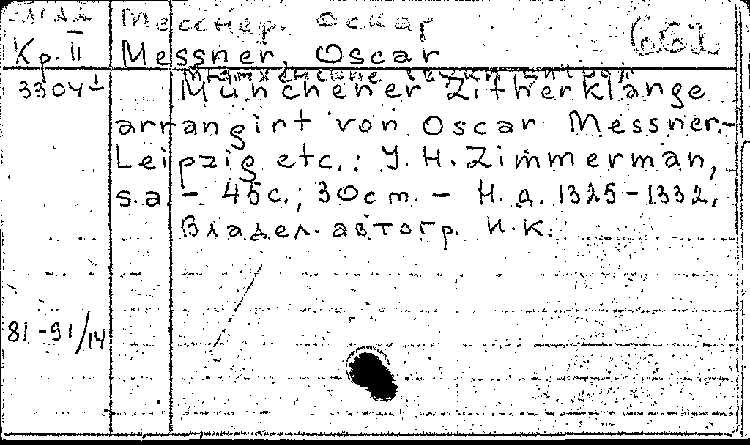 Месснер. Оскар
662
Кр. II
Messner, Oscar
Мюнхенские
3304
Münchener Zitherklänge
arrangirt von Oscar Messner.-
Leipzig etc.: J. H. Zimmerman,
s.a. - 45с.; 30cm. - Н.д. 1325-1332.
Владел. автогр. И.К.
81-91/14